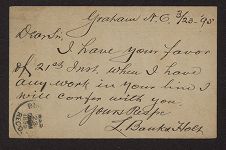 Graham N.C. 3/23-'95
Dear Sir,
I have your favor
of 21st Inst. when I have
any work in your line I
will confer with you.
Yours Respc
L. Banks Holt